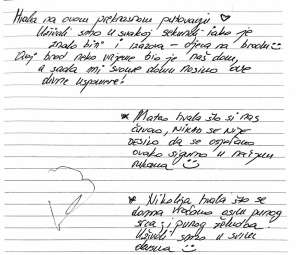 Hvala na ovom prekrasnom putovanju ♡
Uživali smo u svakoj sekundi iako je
znalo biti i izazova - djeca na brodu☺
Ovaj brod neko vrijeme bio je naš dom,
a sada mi svome domu nosimo ove
divne uspomene!
* Matao hvala što si nas
čuvao, nikad se nije
desilo da se osjećamo
ovako sigurno u nečijim
rukama ☺
* Nikolina hvala što se
doma vraćamo osim punog
srca i punog želudca!
Uživali smo u svim